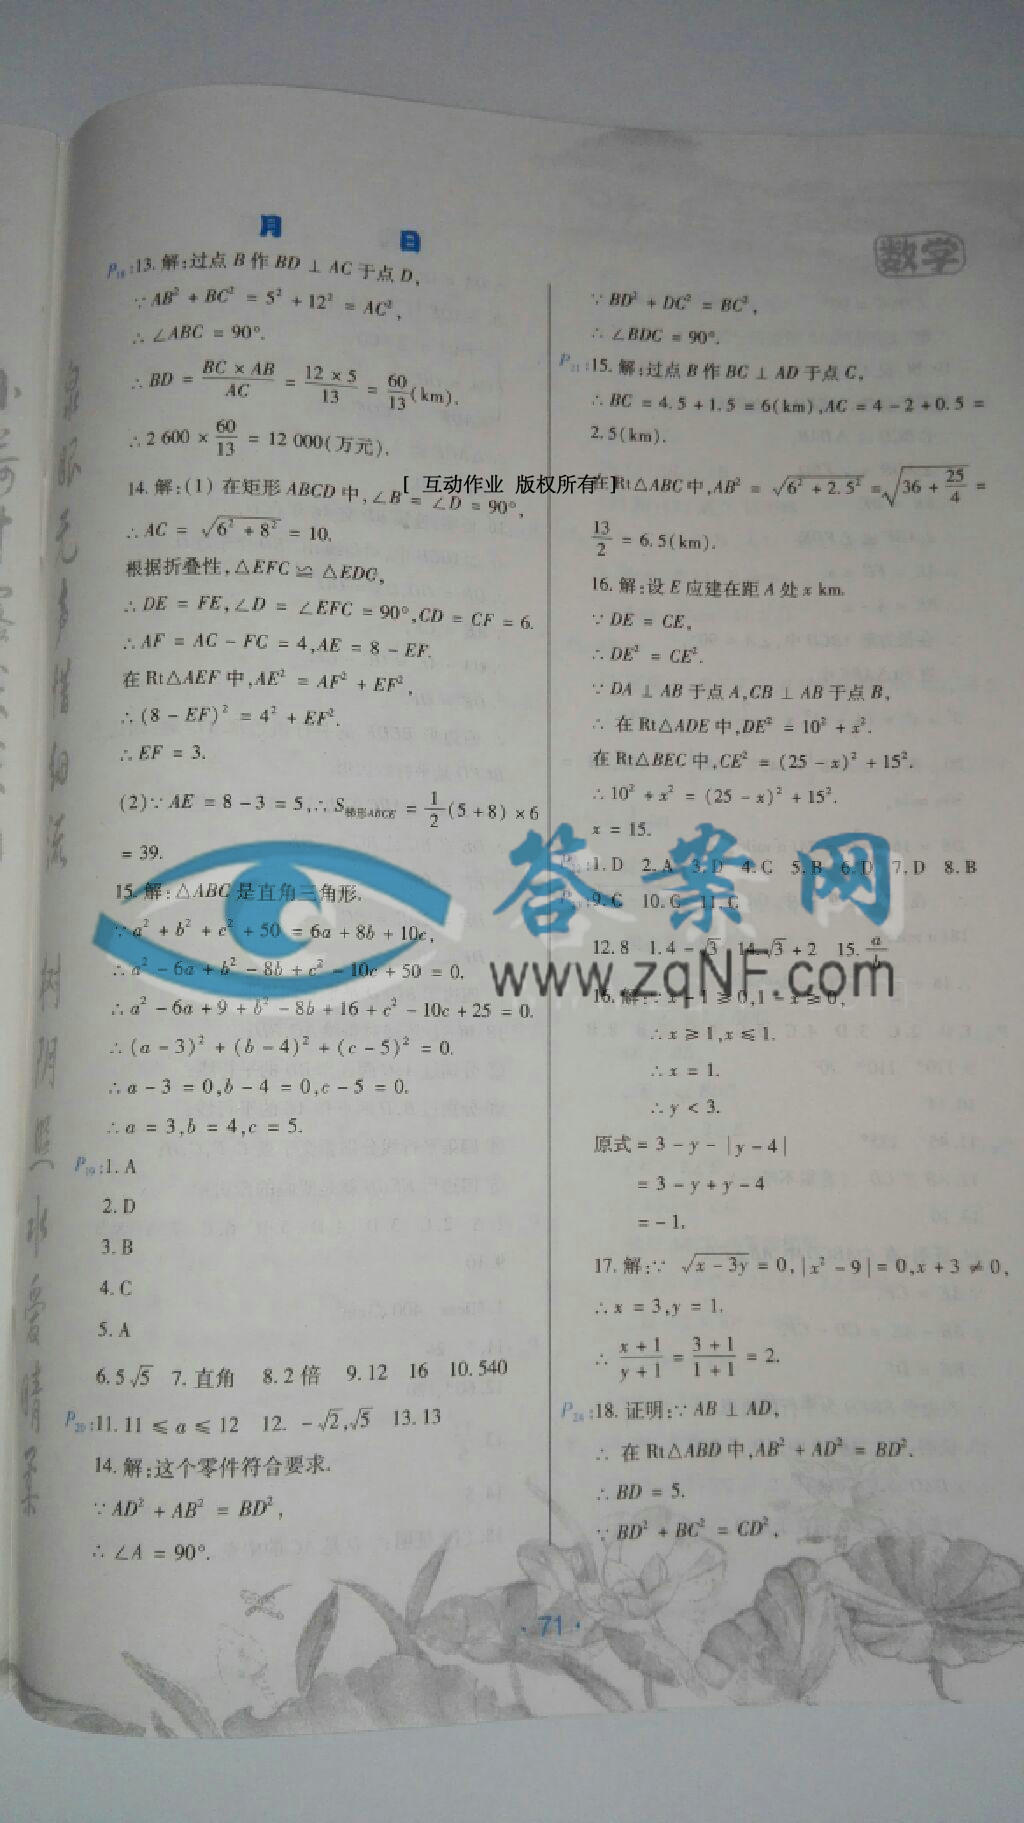 月 日
数学
P18:13.解:过点B作BD⊥AC于点D,
∵AB²+BC²=5²+12²=AC²,
∴∠ABC=90°.
∴BD=\frac{BC×AB}{AC}=\frac{12×5}{13}=\frac{60}{13}(km).
∴2 600×\frac{60}{13}=12 000(万元).
14.解:(1)在矩形ABCD中,∠B=∠D=90°,
∴AC=√(6²+8²)=10.
根据折叠性,△EFC≌△EDC,
∴DE=FE,∠D=∠EFC=90°,CD=CF=6.
∴AF=AC-FC=4,AE=8-EF.
在Rt△AEF中,AE²=AF²+EF²,
∴(8-EF)²=4²+EF².
∴EF=3.
(2)∵AE=8-3=5,∴S梯形ABCE=\frac{1}{2}(5+8)×6
=39.
15.解:△ABC是直角三角形.
∵a²+b²+c²+50=6a+8b+10c,
∴a²-6a+b²-8b+c²-10c+50=0.
∴a²-6a+9+b²-8b+16+c²-10c+25=0.
∴(a-3)²+(b-4)²+(c-5)²=0.
∴a-3=0,b-4=0,c-5=0.
∴a=3,b=4,c=5.
P19:1.A
2.D
3.B
4.C
5.A
6.5√5 7.直角 8.2倍 9.12 16 10.540
P20:11.11≤a≤12 12.-√2,√5 13.13
14.解:这个零件符合要求.
∵AD²+AB²=BD²,
∴∠A=90°.
∵BD²+DC²=BC²,
∴∠BDC=90°.
P21:15.解:过点B作BC⊥AD于点C,
∴BC=4.5+1.5=6(km),AC=4-2+0.5=
2.5(km).
在Rt△ABC中,AB²=√(6²+2.5²)=√(36+\frac{25}{4})=
\frac{13}{2}=6.5(km).
16.解:设E应建在距A处x km.
∵DE=CE,
∴DE²=CE².
∵DA⊥AB于点A,CB⊥AB于点B,
∴在Rt△ADE中,DE²=10²+x².
在Rt△BEC中,CE²=(25-x)²+15².
∴10²+x²=(25-x)²+15².
x=15.
P22:1.D 2.A 3.D 4.C 5.B 6.D 7.D 8.B
P23:9.C 10.C 11.C
12.8 1.4-√3 14.√3+2 15.\frac{a}{b}
16.解:∵x-1≥0,1-x≥0,
∴x≥1,x≤1.
∴x=1.
∴y<3.
原式=3-y-|y-4|
=3-y+y-4
=-1.
17.解:∵√(x-3y)=0,|x²-9|=0,x+3≠0,
∴x=3,y=1.
∴\frac{x+1}{y+1}=\frac{3+1}{1+1}=2.
P24:18.证明:∵AB⊥AD,
∴在Rt△ABD中,AB²+AD²=BD².
∴BD=5.
∵BD²+BC²=CD²,
·71·
[ 互动作业 版权所有 ]
答案网
www.zqNF.com
泉眼无声惜细流
树阴照水爱晴柔